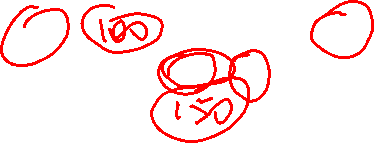 100
150